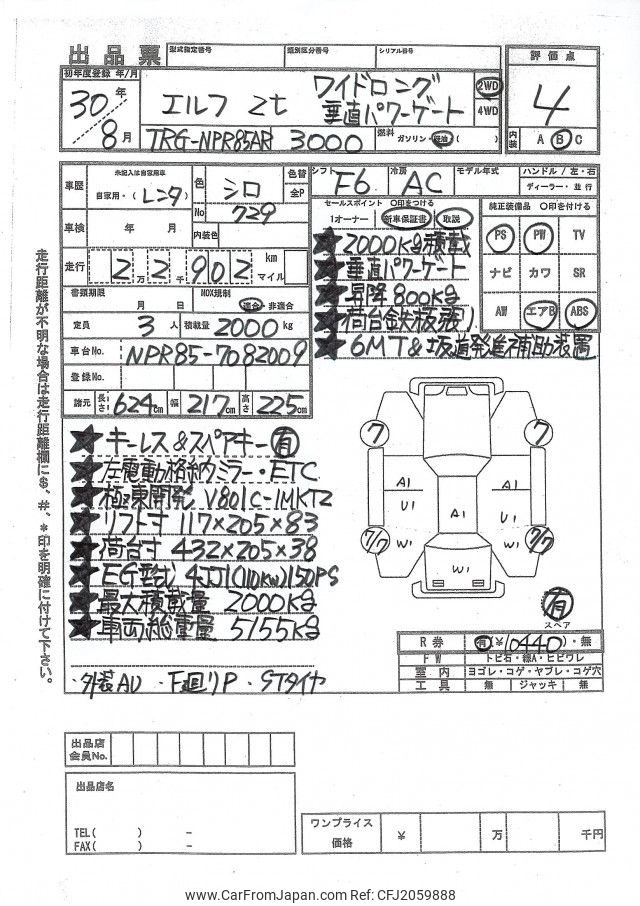 出品票
型式指定番号 類別区分番号 シリアル番号
評価点
4
内装 A B C
初年度登録 年/月
30年
8月
エルフ 2t ワイドロング
垂直パワーゲート
2WD
4WD
TRG-NPR85AR 3000
燃料 ガソリン・軽油・( )
車歴
未記入は自家用車
自家用・(レンタ)
色 シロ
色替 全P
No 729
シフト F6
冷房 AC
モデル年式
ハンドル / 左・右
ディーラー・並行
車検 年 月
内装色
走行 22902 km
万 千 マイル
書類期限 月 日
NOX規制 適合・非適合
定員 3人 積載量 2000 kg
車台No. NPR85-7082009
登録No.
諸元 長さ 624cm 幅 217cm 高さ 225cm
セールスポイント ○印をつける
1オーナー 新車保証書 取説
★2000Kg積載
★垂直パワーゲート
★昇降800Kg
★荷台鉄板張り
★6MT&坂道発進補助装置
純正装備品 ○印を付ける
PS PW TV
ナビ カワ SR
AW エアB ABS
★キーレス&スペアキー有
★左電動格納ミラー・ETC
★極東開発 V801C-1MKTZ
★リフト寸 117×205×83
★荷台寸 432×205×38
★EG型式 4JJ1(110KW)150PS
★最大積載量 2000Kg
★車両総重量 5155Kg
・外装AU ・F廻りP ・STタイヤ
7 7
A1 A1
U1 A1 U1
7/7 W1 W1 7/7
W1
有
スペア
R券 有 ¥10440・無
FW トビ石・線A・ヒビワレ
室内 ヨゴレ・コゲ・ヤブレ・コゲ穴
工具 無 ジャッキ 無
走行距離が不明な場合は走行距離欄に$、#、*印を明確に付けて下さい。
出品店
会員No.
出品店名
TEL( ) -
FAX( ) -
ワンプライス
価格 ¥ 万 千円
www.CarFromJapan.com Ref: CFJ2059888